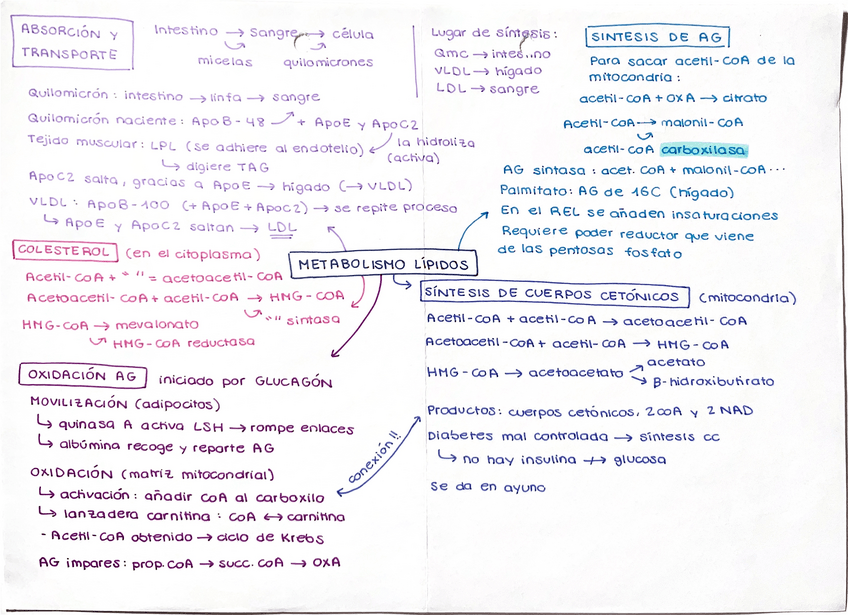 ABSORCIÓN Y
TRANSPORTE
Intestino → Sangre → célula
micelas quilomicrones
Quilomicrón: intestino → linfa → sangre
Quilomicrón naciente: ApoB-48 + ApoE y ApoC2
Tejido muscular: LPL (se adhiere al endotelio) la hidroliza
(activa)
↳ digiere TAG
ApoC2 salta, gracias a ApoE → hígado (→ VLDL)
VLDL: ApoB-100 (+ApoE+ApoC2) → se repite proceso
↳ ApoE y ApoC2 saltan → LDL
Lugar de síntesis:
Qmc →
VLDL → hígado
LDL → sangre
SINTESIS DE AG
Para sacar acetil-CoA de la
mitocondria:
acetil-CoA + OXA → citrato
Acetil-CoA → malonil-CoA
acetil-CoA carboxilasa
AG sintasa: acet. CoA + malonil-CoA...
Palmitato: AG de 16C (hígado)
En el REL se añaden insaturaciones
Requiere poder reductor que viene
de las pentosas fosfato
METABOLISMO LÍPIDOS
COLESTEROL (en el citoplasma)
Acetil-CoA + " " = acetoacetil-COA
Acetoacetil-CoA + acetil-COA → HMG-COA
" " sintasa
HMG-COA → mevalonato
HMG-COA reductasa
SÍNTESIS DE CUERPOS CETÓNICOS (mitocondria)
Acetil-COA + acetil-COA → acetoacetil-COA
Acetoacetil-COA + acetil-COA → HMG-COA
HMG-COA → acetoacetato → acetato
→ β-hidroxibutirato
Productos: cuerpos cetónicos, 2 COA y 2 NAD
Diabetes mal controlada → síntesis cc
↳ no hay insulina ↛ glucosa
Se da en ayuno
OXIDACIÓN AG iniciado por GLUCAGÓN
MOVILIZACIÓN (adipocitos)
↳ quinasa A activa LSH → rompe enlaces
↳ albúmina recoge y reparte AG
OXIDACIÓN (matriz mitocondrial)
↳ activación: añadir COA al carboxilo
↳ lanzadera carnitina: COA ↔ carnitina
- Acetil-COA obtenido → ciclo de Krebs
AG impares: prop. COA → succ. COA → OXA
conexión!!